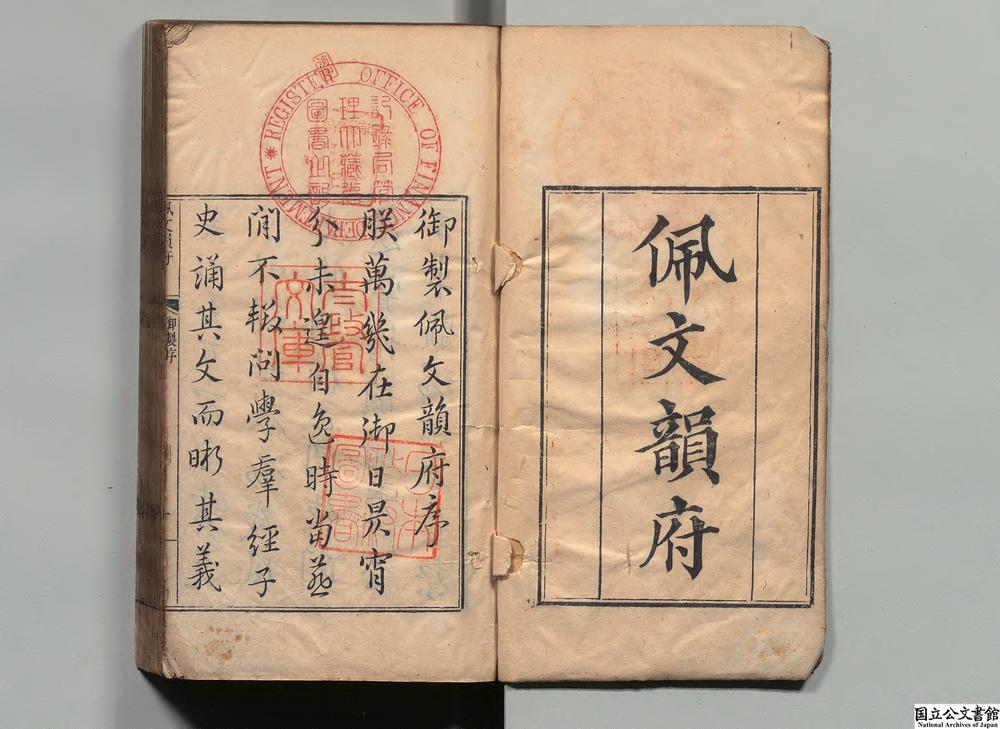 佩文韻府
御製佩文韻府序
朕萬幾在御日昃宵
分未遑自逸時當燕
閒不輟問學羣經子
史誦其文而晰其義
御製序
REGISTER OFFICE OF FINANCE
太政官
文庫
日本
政府
圖書
国立公文書館
National Archives of Japan